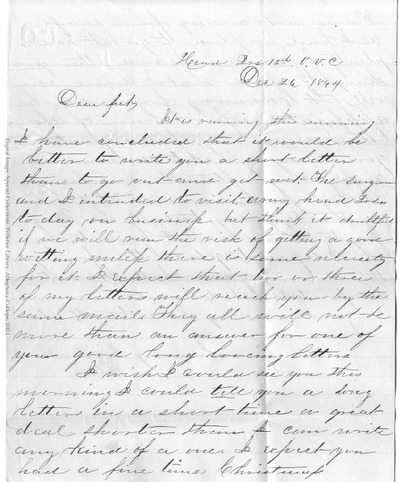 Head Qrs 12th V.V.C
Dec 26 1864
Dear
It is raining this morning
I have concluded that it would be
better to write you a short letter
than to go out and get wet. The surgeon
and I intended to visit army head Qrs
to day on business but think it doubtful
if we will run the risk of getting a good
wetting unless there is some necessity
for it. I expect that two or three
of my letters will reach you by the
same mail. They all will not be
more than an answer for one of
your good long loveing letters
I wish I could see you this
morning I could tell you a long
letter in a short time a great
deal shorter than I can write
any kind of a one. I expect you
had a fine time Christmas